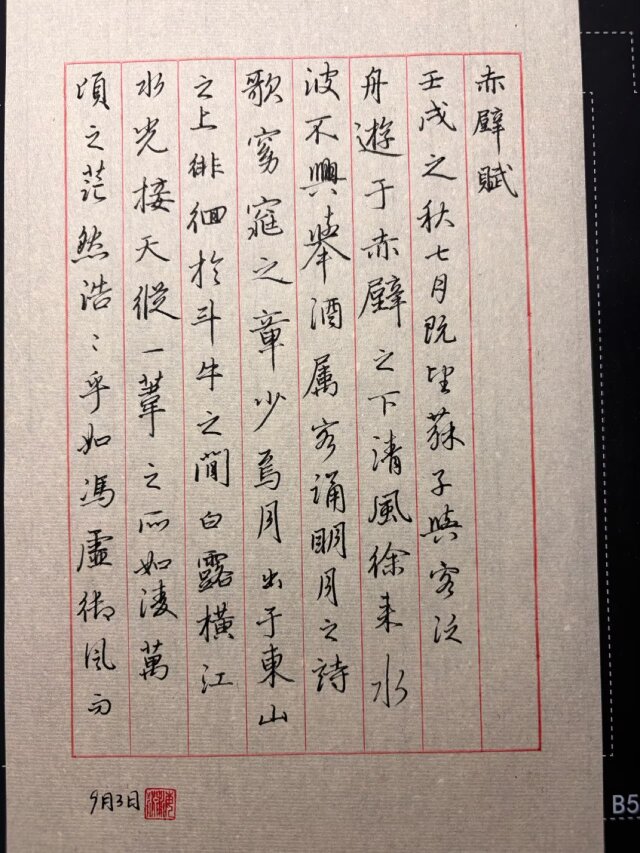 赤壁賦
壬戌之秋七月既望蘇子與客泛
舟遊于赤壁之下清風徐来水
波不興舉酒属客誦明月之詩
歌窈窕之章少焉月出于東山
之上徘徊於斗牛之間白露橫江
水光接天縱一葦之所如凌萬
頃之茫然浩〻乎如馮虛御風而
9月3日
B5